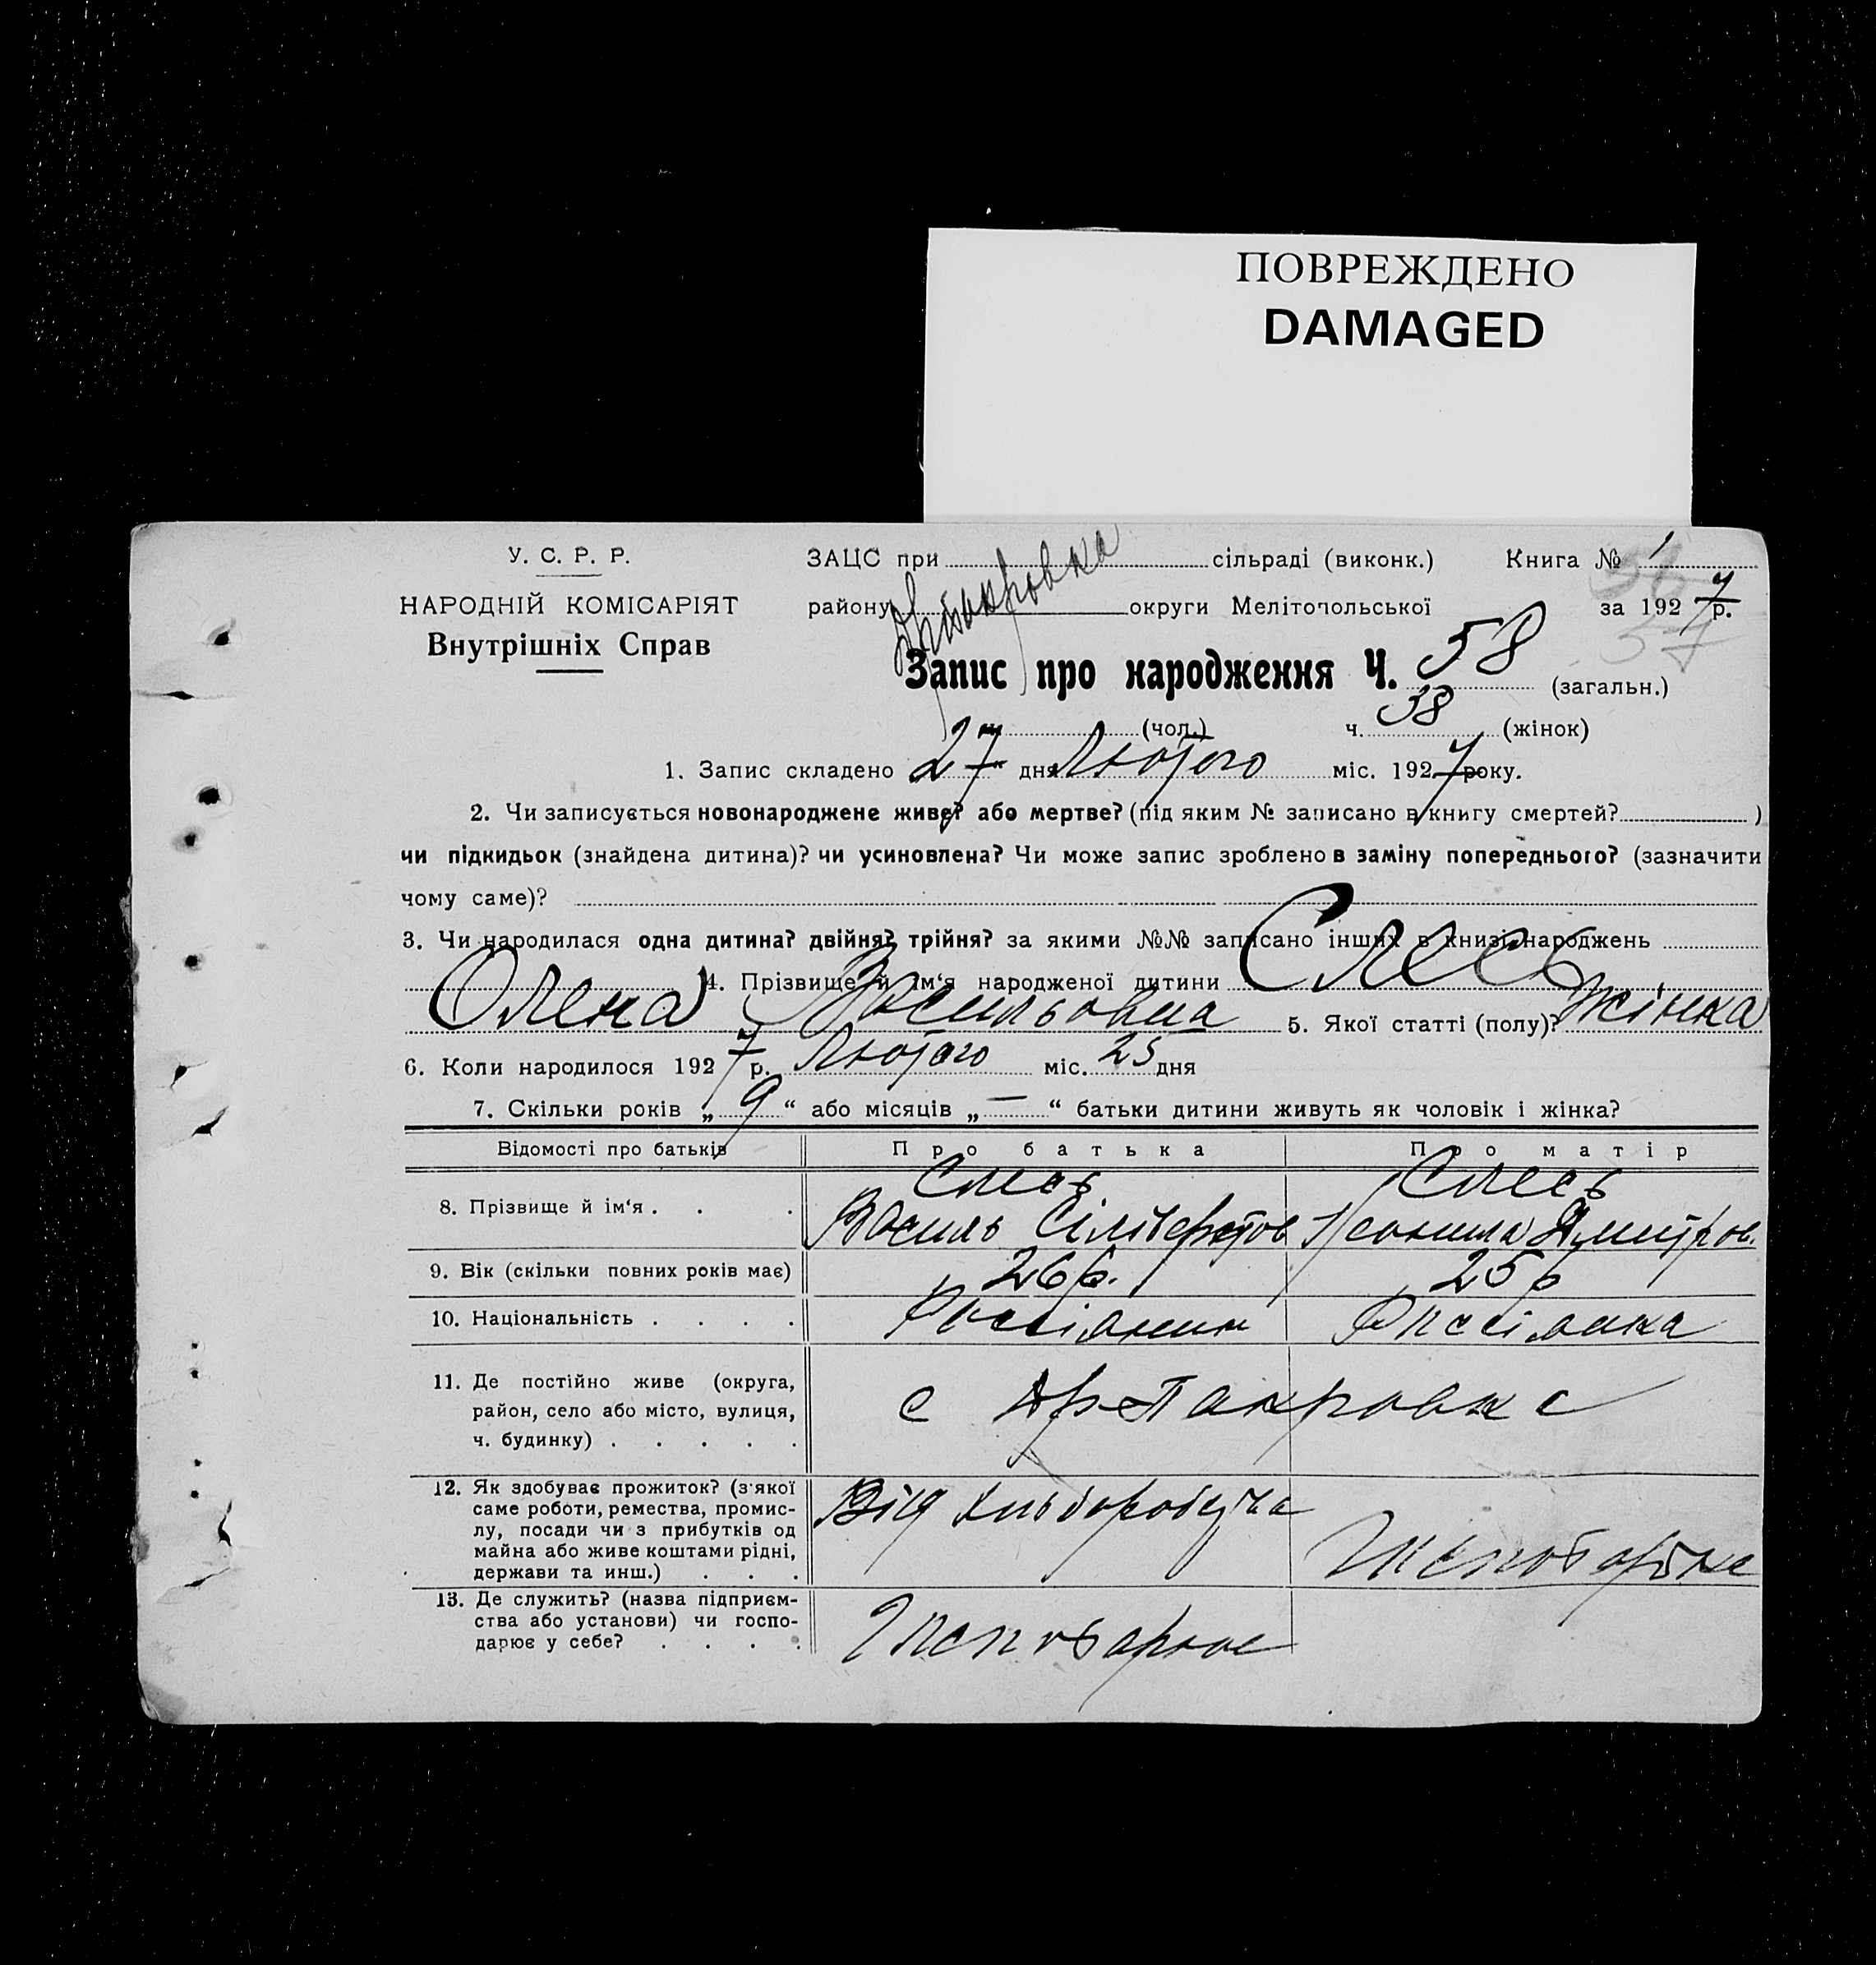 ПОВРЕЖДЕНО
DAMAGED
У. С. Р. Р.
НАРОДНІЙ КОМІСАРІЯТ
Внутрішніх Справ
ЗАЦС при сільраді (виконк.) Книга № 1
району округи Мелітопольської за 1927 р.
Запис про народження Ч. 58 (загальн.)
37
(чол.) ч. 38 (жінок)
1. Запис складено 27 дня Лютого міс. 1927 року.
2. Чи записується новонароджене живе? або мертве? (під яким № записано в книгу смертей? )
чи підкидьок (знайдена дитина)? чи усиновлена? Чи може запис зроблено в заміну попереднього? (зазначити
чому саме)?
3. Чи народилася одна дитина? двійня? трійня? за якими №№ записано інших в книзі народжень
4. Прізвище й ім'я народженої дитини Слесь
Олена Васильовна 5. Якої статті (полу)? жінка
6. Коли народилося 1927 р. Лютого міс. 25 дня
7. Скільки років „ 9 “ або місяців „ — “ батьки дитини живуть як чоловік і жінка?
Відомості про батьків Про батька Про матір
8. Прізвище й ім'я . . . Слесь Василь Слесь Дмитров.
9. Вік (скільки повних років має) 26 р. 25 р
10. Національність . . . . Россіянин Россіянка
11. Де постійно живе (округа,
район, село або місто, вулиця,
ч. будинку) . . . . .
с
12. Як здобуває прожиток? (з'якої
саме роботи, ремества, промис-
лу, посади чи з прибутків од
майна або живе коштами рідні,
держави та инш.) . . .
Від
13. Де служить? (назва підприєм-
ства або установи) чи госпо-
дарює у себе? . . . .